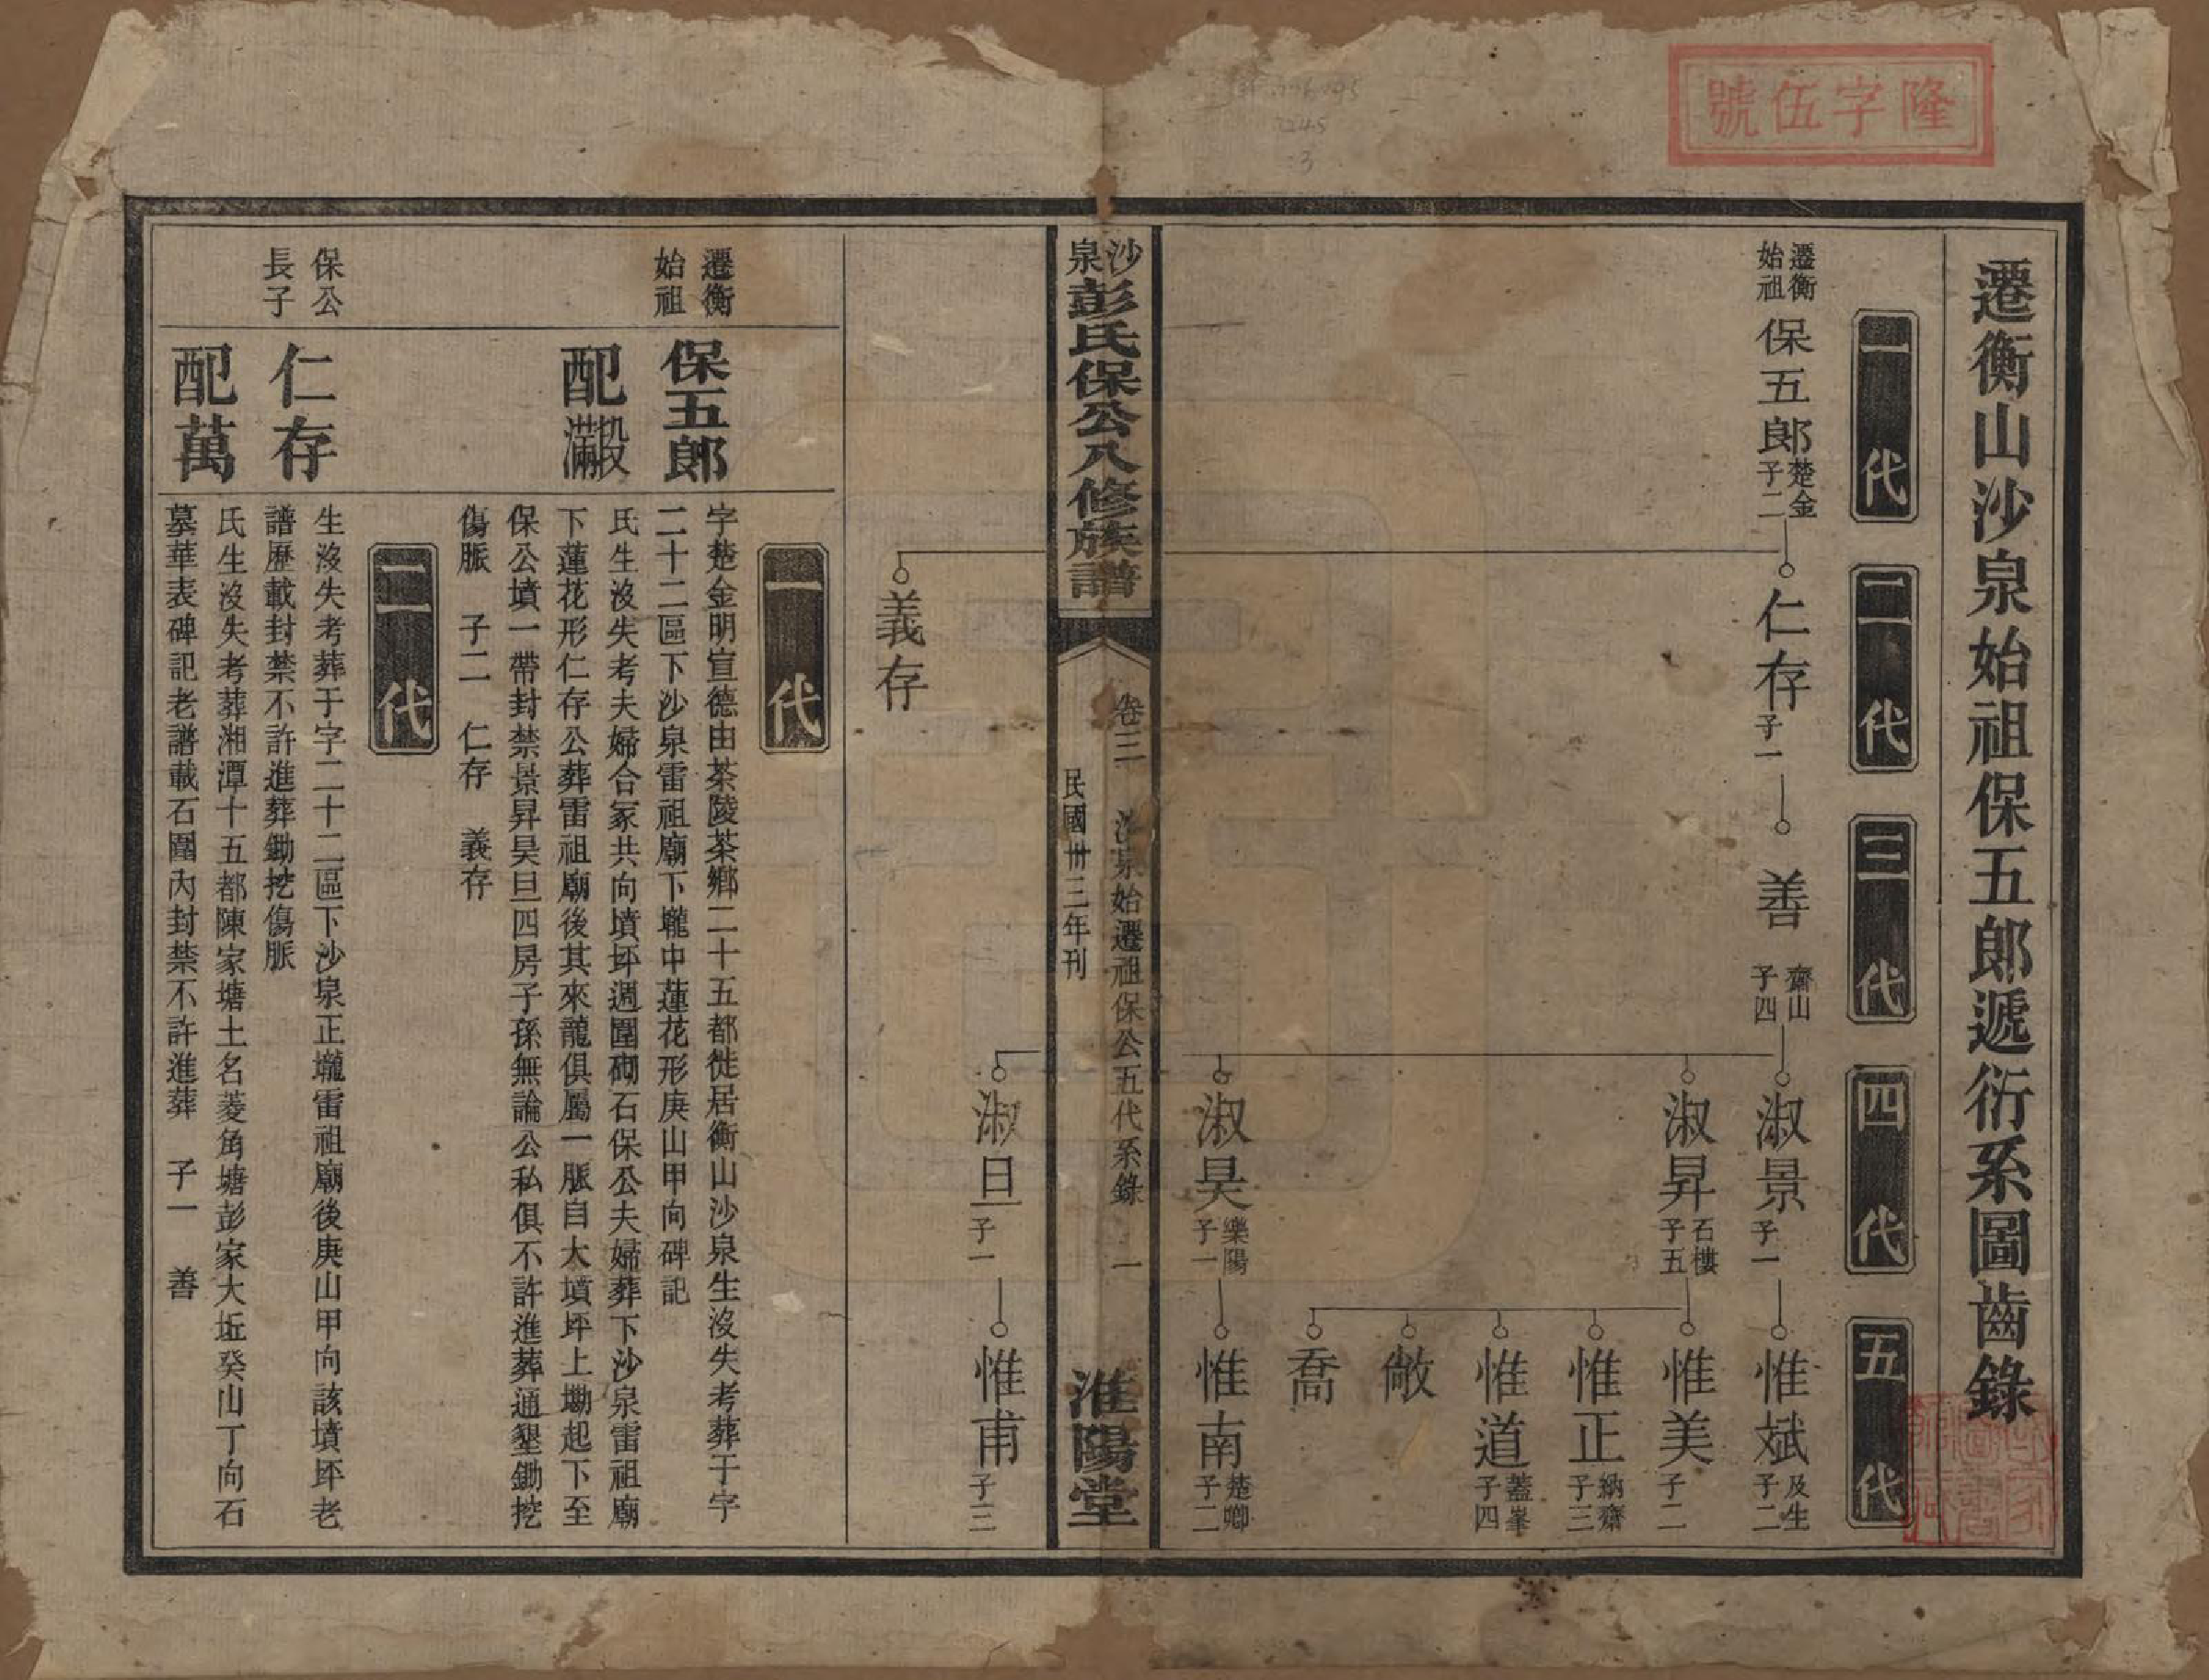 隆字伍號
遷衡山沙泉始祖保五郎遞衍系圖齒錄
一代
二代
三代
四代
五代
遷衡始祖
保五郎 楚金 子二
仁存 子一
善 齋山 子四
淑景 子一
惟斌 及生 子二
淑昇 石樓 子五
惟美 子二
惟正 納齋 子三
惟道 蓋峯 子四
敞
喬
淑昊 樂陽 子一
惟南 楚卿 子二
沙泉彭氏保公八修族譜
卷三 沙泉始遷祖保公五代系錄 一
民國卅三年刊
淮陽堂
淑旦 子一
惟甫 子三
義存
一代
遷衡始祖
保五郎
字楚金明宣德由茶陵茶鄉二十五都徙居衡山沙泉生沒失考葬于字
二十二區下沙泉雷祖廟下壠中蓮花形庚山甲向碑記
配 段 滿
氏生沒失考夫婦合冢共向墳坪週圍砌石保公夫婦葬下沙泉雷祖廟
下蓮花形仁存公葬雷祖廟後其來龍俱屬一脈自大墳坪上墈起下至
保公墳一帶封禁景昇昊旦四房子孫無論公私俱不許進葬通墾鋤挖
傷脈 子二 仁存 義存
二代
保公長子
仁存
生沒失考葬于字二十二區下沙泉正壠雷祖廟後庚山甲向該墳坪老
譜歷載封禁不許進葬鋤挖傷脈
配萬
氏生沒失考葬湘潭十五都陳家塘土名菱角塘彭家大坵癸山丁向石
墓華表碑記老譜載石圍內封禁不許進葬 子一 善